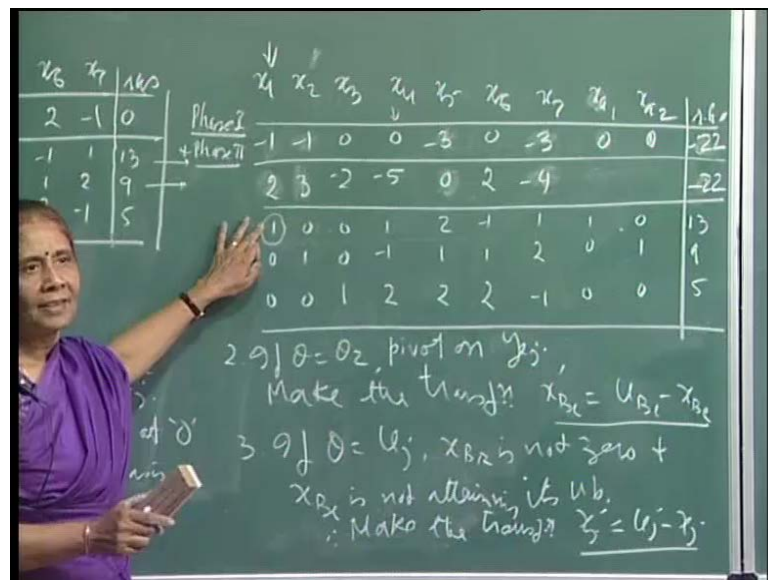 x6 x7 rhs
2 -1 0
-1 1 13
1 2 9
-1 5
x1 x2 x3 x4 x5 x6 x7 xa1 xa2 r.h.s
Phase I -1 -1 0 0 -3 0 -3 0 0 -22
+ Phase II
2 3 -2 -5 0 2 -4 -22
1 0 0 1 2 -1 1 1 0 13
0 1 0 -1 1 1 2 0 1 9
0 0 1 2 2 2 -1 0 0 5
2. If θ = θ2, pivot on yrj.
Make the transfn x'Br = uBr - xBr
3. If θ = uj, xBr is not zero +
xBr is not attaining its u.b.
∴ Make the transfn x'j = uj - xj.
of 'θ'